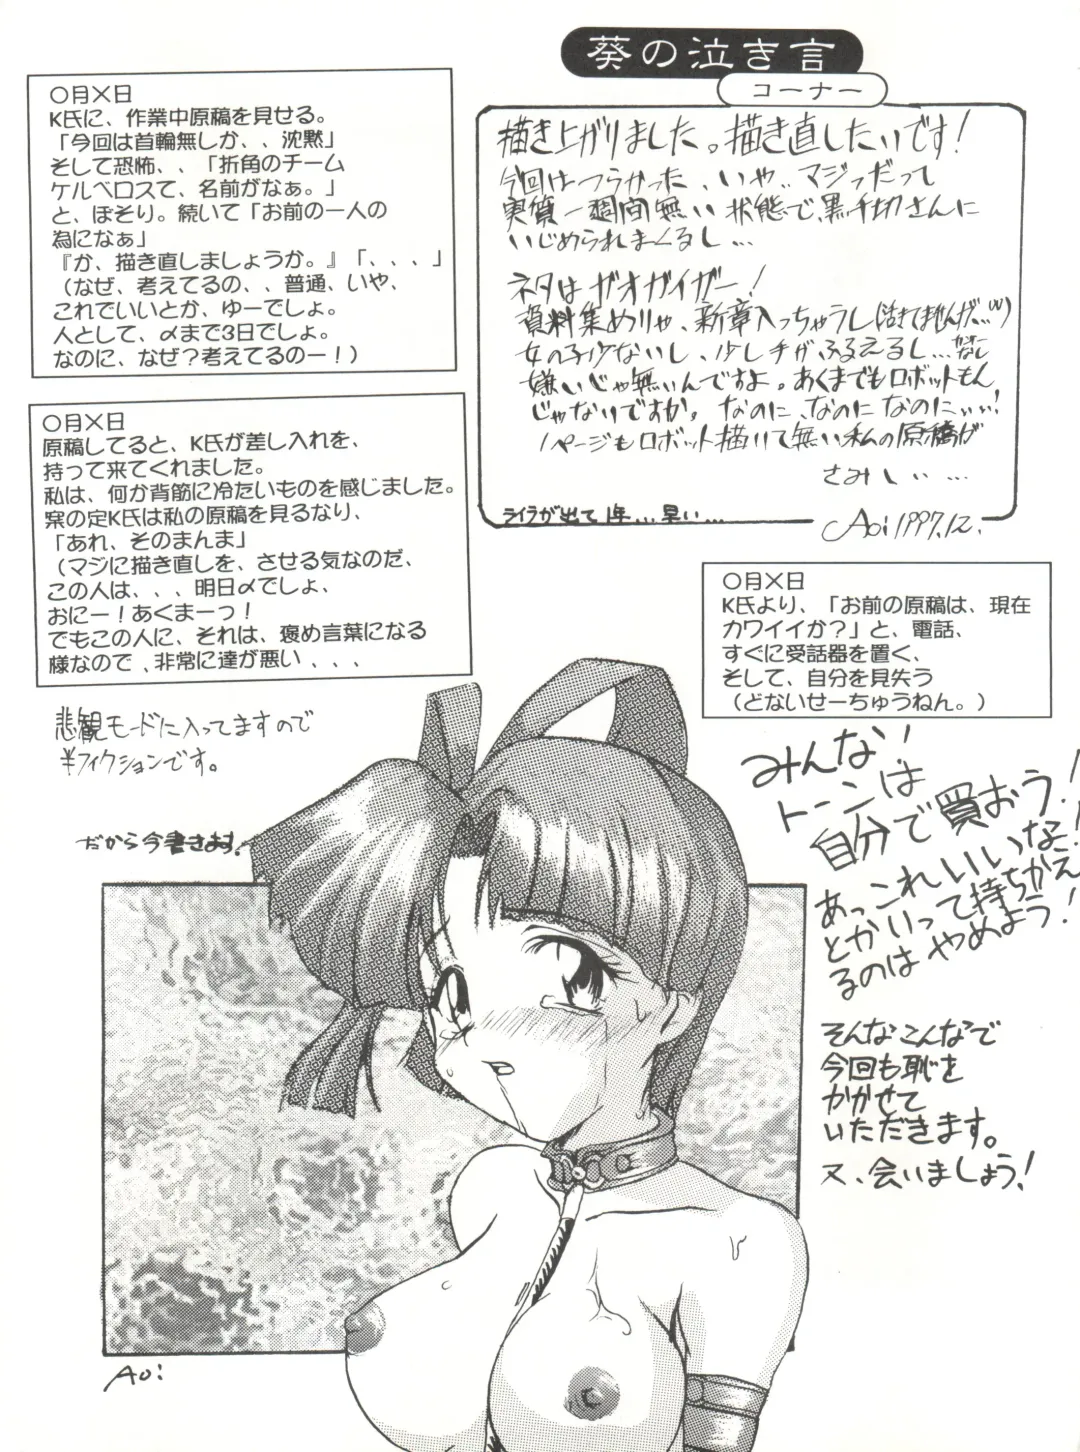 葵の泣き言
コーナー
〇月×日
K氏に、作業中原稿を見せる。
「今回は首輪無しか、、沈黙」
そして恐怖、、「折角のチーム
ケルベロスて、名前がなぁ。」
と、ぼそり。続いて「お前の一人の
為になぁ」
『か、描き直しましょうか。』「、、、、」
(なぜ、考えてるの、、普通、いや、
これでいいとか、ゆーでしょ。
人として、〆まで3日でしょ。
なのに、なぜ?考えてるのー!)
描き上がりました。描き直したいです!
今回はつらかった、いや、、マジっだって
実質一週間無い状態で、黒千切さんに
いじめられまくるし…
ネタはガオガイガー!
資料集めりゃ、新章入っちゃうし(活きてませんが…
女の子少ないし、少し手がふるえるし…
嫌いじゃ無いんですよ。あくまでもロボットもん
じゃないですか。なのに、なのになのにぃぃ!
1ページもロボット描いて無い私の原稿が
さみしぃ…
ライラが出て1年…早い…
Aoi 1997.12.
〇月×日
原稿してると、K氏が差し入れを、
持って来てくれました。
私は、何か背筋に冷たいものを感じました。
案の定K氏は私の原稿を見るなり、
「あれ、そのまんま」
(マジに描き直しを、させる気なのだ、
この人は、、、明日〆でしょ、
おにー!あくまーっ!
でもこの人に、それは、褒め言葉になる
様なので、非常に達が悪い、、、
〇月×日
K氏より、「お前の原稿は、現在
カワイイか?」と、電話、
すぐに受話器を置く、
そして、自分を見失う
(どないせーちゅうねん。)
悲観モードに入ってますので
半フィクションです。
だから今書きます。
みんな!
トーンは
自分で買おう!
あっこれいいな!
とかいって持ちかえ
るのは やめよう!
そんなこんなで
今回も恥を
かかせて
いただきます。
又、会いましょう!
Aoi